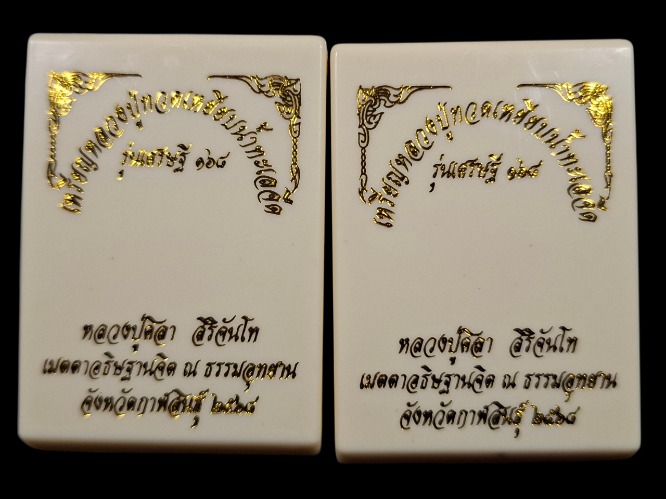 เหรียญหลวงปู่ทวดเหยียบน้ำทะเลจืด
รุ่นเศรษฐี ๑๖๘
หลวงปู่ศิลา สิริจันโท
เมตตาอธิษฐานจิต ณ ธรรมอุทยาน
จังหวัดกาฬสินธุ์ ๒๕๖๘
เหรียญหลวงปู่ทวดเหยียบน้ำทะเลจืด
รุ่นเศรษฐี ๑๖๘
หลวงปู่ศิลา สิริจันโท
เมตตาอธิษฐานจิต ณ ธรรมอุทยาน
จังหวัดกาฬสินธุ์ ๒๕๖๘